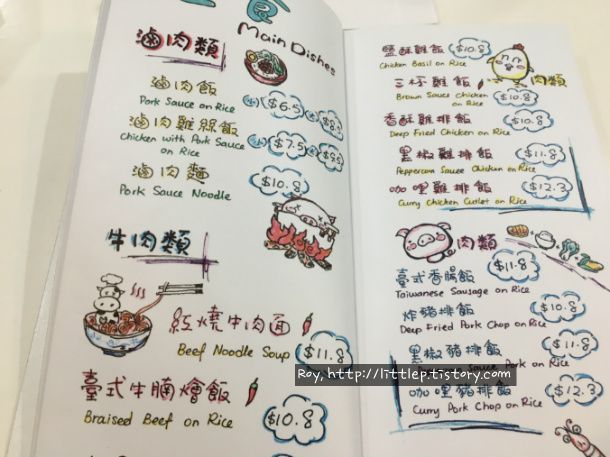 食
Main Dishes
滷肉類
滷肉飯
Pork Sauce on Rice
(小) $6.5 (大) $8.5
滷肉雞絲飯
Chicken with Pork Sauce
on Rice
(小) $7.5 (大) $9.5
滷肉麵
Pork Sauce Noodle
$10.8
牛肉類
紅燒牛肉面
Beef Noodle Soup
$11.8
臺式牛腩燴飯
Braised Beef on Rice
$10.8
鹽酥雞飯
$10.8
Chicken Basil on Rice
三杯雞飯
肉類
Brown Sauce Chicken
on Rice
$10.8
香酥雞排飯
$10.8
Deep Fried Chicken on Rice
黑椒雞排飯
$11.8
Peppercorn Sauce Chicken
on Rice
咖哩雞排飯
$12.3
Curry Chicken Cutlet on Rice
肉類
臺式香腸飯
$11.8
Taiwanese Sausage on Rice
炸豬排飯
$10.8
Deep Fried Pork Chop on Rice
黑椒豬排飯
$11.8
Sauce Pork on Rice
Roy, http://littlep.tistory.com
咖哩豬排飯
$12.3
Curry Pork Chop on Rice